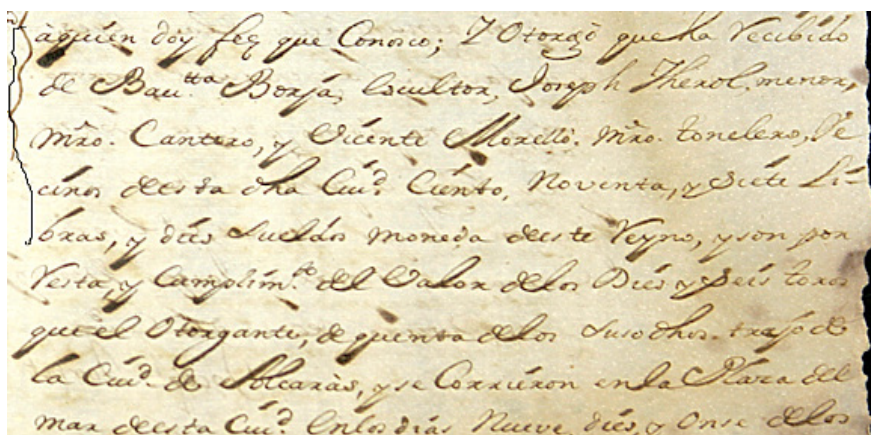 àquien doy feé que Conosco; Y Otorgò que ha Recibido
de Bau.tta Borja, Escultor, Joseph Therol, menor,
Mro. Cantero, y Vicente Morellò. Mro. tonelero, Ve
cinos de esta dha Ciud. Ciento, Noventa, y Siete Li-
bras, y dies Sueldos moneda deeste Reyno, y son por
Resta, y Cumplim.to del Valor delos Dies y Seis toros
que el Otorgante, de quenta delos Susodhos. trajo de
la Ciud. de Alcaràs, y se Corrieron en la Plaza del
mar deesta Ciud. Enlos dias Nueve, dies, y Onse delos